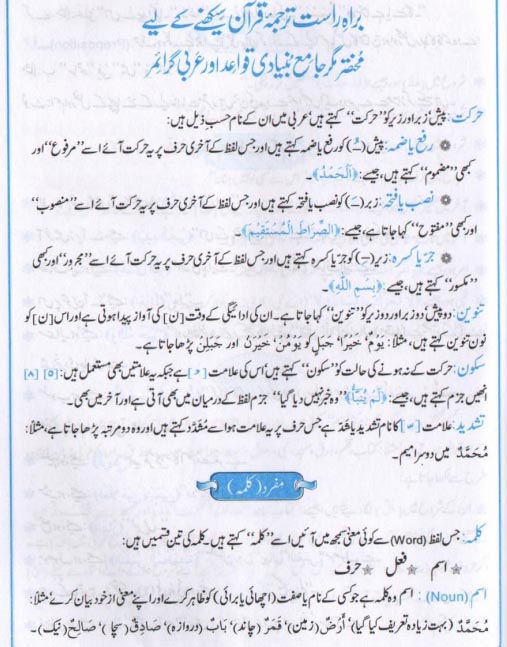 براہِ راست ترجمۂ قرآن سیکھنے کے لیے
مختصر مگر جامع بنیادی قواعد اور عربی گرائمر
حرکت: پیش، زبر اور زیر کو ”حرکت“ کہتے ہیں عربی میں ان کے نام حسبِ ذیل ہیں:
رفع یا ضمہ: پیش (ـُ) کو رفع یا ضمہ کہتے ہیں اور جس لفظ کے آخری حرف پر یہ حرکت آئے اسے ”مرفوع“ اور
کبھی ”مضموم“ کہتے ہیں، جیسے: ﴿اَلْحَمْدُ﴾۔
نصب یا فتحہ: زبر (ـَ) کو نصب یا فتحہ کہتے ہیں اور جس لفظ کے آخری حرف پر یہ حرکت آئے اسے ”منصوب“
اور کبھی ”مفتوح“ کہا جاتا ہے، جیسے: ﴿الصِّرَاطَ الْمُسْتَقِيْمَ﴾۔
جر یا کسرہ: زیر (ـِ) کو جر یا کسرہ کہتے ہیں اور جس لفظ کے آخری حرف پر یہ حرکت آئے اسے ”مجرور“ اور کبھی
”مکسور“ کہتے ہیں، جیسے: ﴿بِسْمِ اللّٰهِ﴾۔
تنوین: دو پیش، دو زبر اور دو زیر کو ”تنوین“ کہا جاتا ہے۔ ان کی ادائیگی کے وقت [ن] کی آواز پیدا ہوتی ہے اور اس [ن] کو
نون تنوین کہتے ہیں، مثلاً: يَوْمٌ، خَيْرًا، جَبَلٍ کو يَوْمُنْ، خَيْرَنْ اور جَبَلِنْ پڑھا جاتا ہے۔
سکون: حرکت کے نہ ہونے کی حالت کو ”سکون“ کہتے ہیں اس کی علامت [ ۡ ] ہے جبکہ یہ علامتیں بھی مستعمل ہیں: [o] [۸]
انھیں جزم کہتے ہیں، جیسے: ﴿لَمْ يُنَبَّأْ﴾ ”وہ خبر نہیں دیا گیا“ جزم لفظ کے درمیان میں بھی آتی ہے اور آخر میں بھی۔
تشدید: علامت [ ّ ] کا نام تشدید یا شد ہے جس حرف پر یہ علامت ہو اسے مشدّد کہتے ہیں اور وہ دو مرتبہ پڑھا جاتا ہے، مثلاً:
مُحَمَّدٌ میں دوسرا میم۔
مفرد (کلمہ)
کلمہ: جس لفظ (Word) سے کوئی معنی سمجھ میں آئیں اسے ”کلمہ“ کہتے ہیں۔ کلمہ کی تین قسمیں ہیں:
اسم فعل حرف
اسم (Noun): اسم وہ کلمہ ہے جو کسی کے نام یا صفت (اچھائی یا برائی) کو ظاہر کرے اور اپنے معنی از خود بیان کرے مثلاً:
مُحَمَّدٌ (بہت زیادہ تعریف کیا گیا)، أَرْضٌ (زمین)، قَمَرٌ (چاند)، بَابٌ (دروازہ)، صَادِقٌ (سچا)، صَالِحٌ (نیک)۔